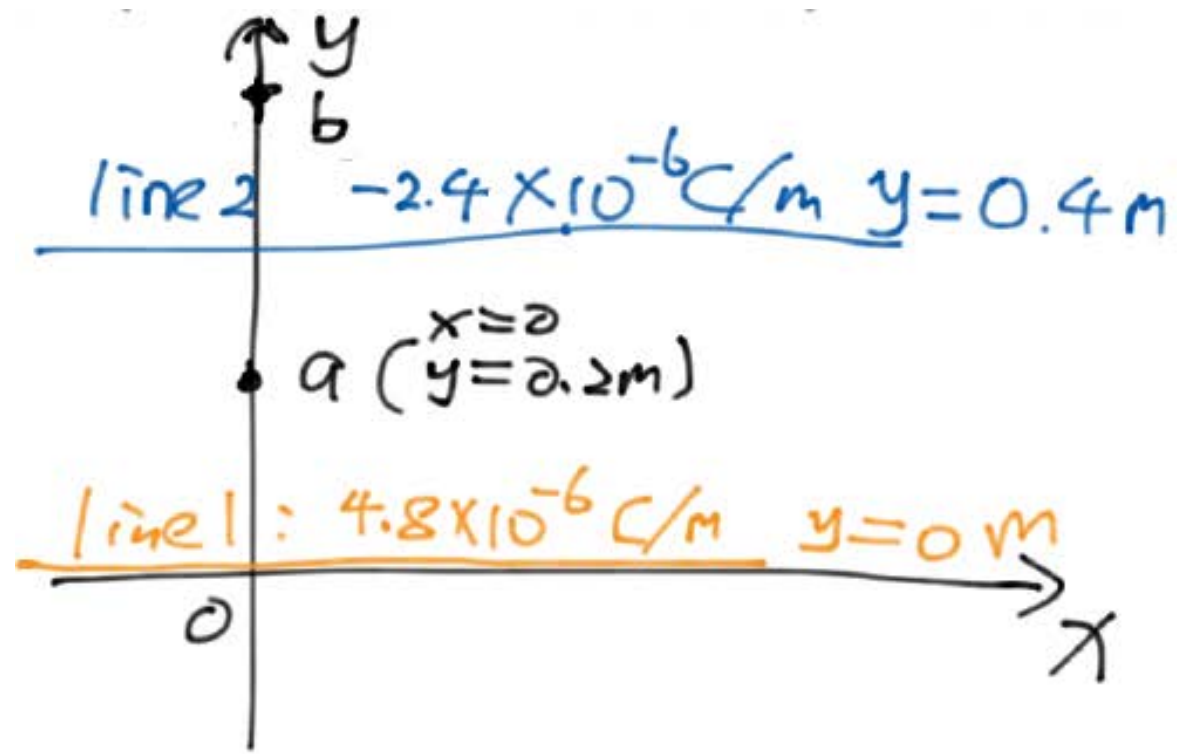 y
b
line 2 -2.4×10⁻⁶C/m y=0.4m
x=0
a (y=0.2m)
line 1: 4.8×10⁻⁶ C/m y=0 m
0
x